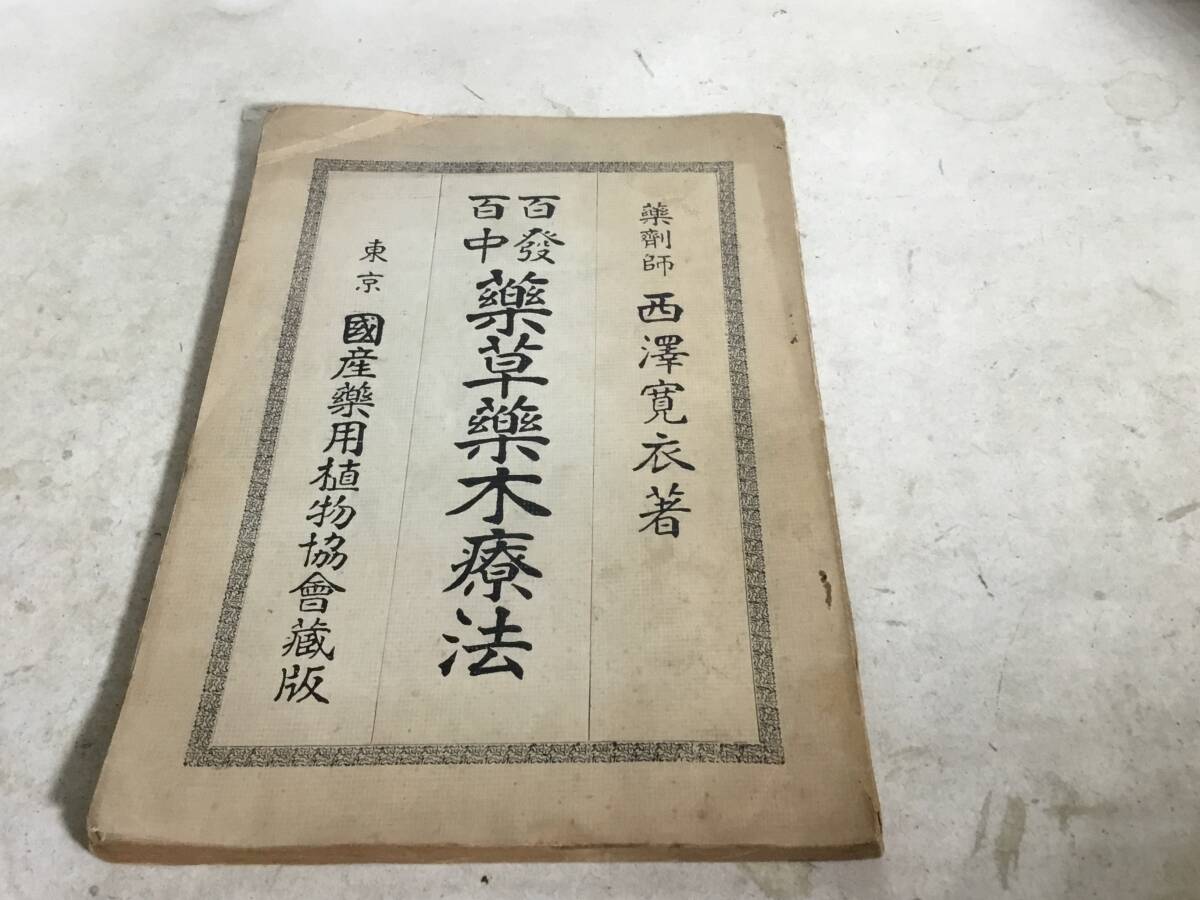 藥劑師 西澤寛衣著
百發百中 藥草藥木療法
東京 國産藥用植物協會藏版